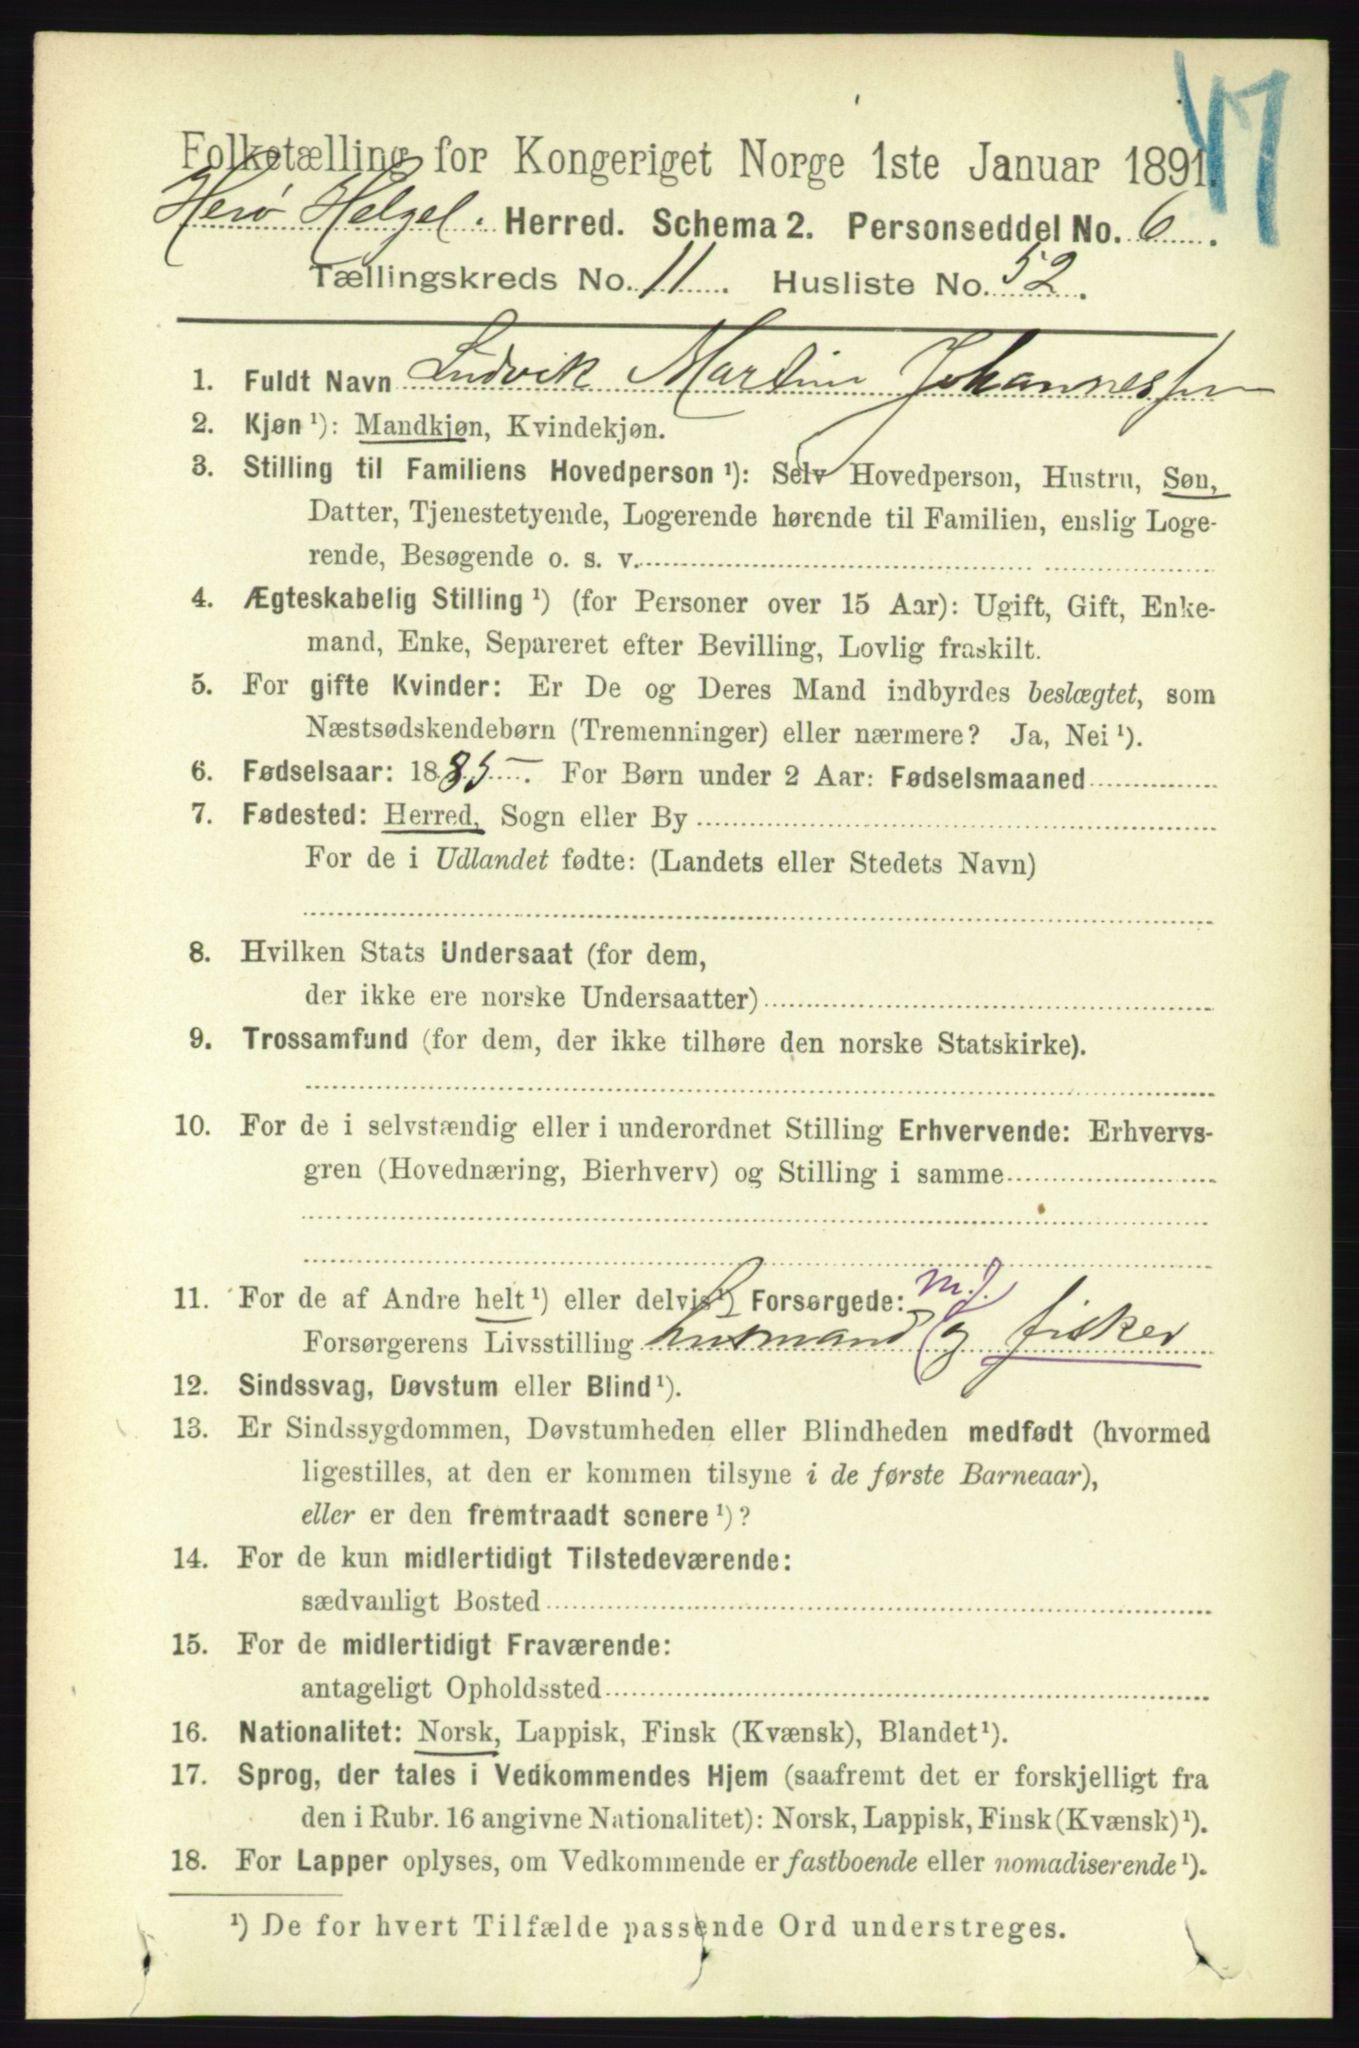 47
Folketælling for Kongeriget Norge 1ste Januar 1891.
Herø Helgel. Herred. Schema 2. Personseddel No. 6.
Tællingskreds No. 11. Husliste No. 52.
1. Fuldt Navn Ludvik Martin Johannessen
2. Kjøn ¹): Mandkjøn, Kvindekjøn.
3. Stilling til Familiens Hovedperson ¹): Selv Hovedperson, Hustru, Søn,
Datter, Tjenestetyende, Logerende hørende til Familien, enslig Loge-
rende, Besøgende o. s. v.
4. Ægteskabelig Stilling ¹) (for Personer over 15 Aar): Ugift, Gift, Enke-
mand, Enke, Separeret efter Bevilling, Lovlig fraskilt.
5. For gifte Kvinder: Er De og Deres Mand indbyrdes beslægtet, som
Næstsødskendebørn (Tremenninger) eller nærmere? Ja, Nei ¹).
6. Fødselsaar: 1885. For Børn under 2 Aar: Fødselsmaaned
7. Fødested: Herred, Sogn eller By
For de i Udlandet fødte: (Landets eller Stedets Navn)
8. Hvilken Stats Undersaat (for dem,
der ikke ere norske Undersaatter)
9. Trossamfund (for dem, der ikke tilhøre den norske Statskirke).
10. For de i selvstændig eller i underordnet Stilling Erhvervende: Erhvervs-
gren (Hovednæring, Bierhverv) og Stilling i samme
11. For de af Andre helt ¹) eller delvis ¹) Forsørgede: m.j.
Forsørgerens Livsstilling husmand og fisker
12. Sindssvag, Døvstum eller Blind ¹).
13. Er Sindssygdommen, Døvstumheden eller Blindheden medfødt (hvormed
ligestilles, at den er kommen tilsyne i de første Barneaar),
eller er den fremtraadt senere ¹)?
14. For de kun midlertidigt Tilstedeværende:
sædvanligt Bosted
15. For de midlertidigt Fraværende:
antageligt Opholdssted
16. Nationalitet: Norsk, Lappisk, Finsk (Kvænsk), Blandet ¹).
17. Sprog, der tales i Vedkommendes Hjem (saafremt det er forskjelligt fra
den i Rubr. 16 angivne Nationalitet): Norsk, Lappisk, Finsk (Kvænsk) ¹).
18. For Lapper oplyses, om Vedkommende er fastboende eller nomadiserende ¹).
¹) De for hvert Tilfælde passende Ord understreges.